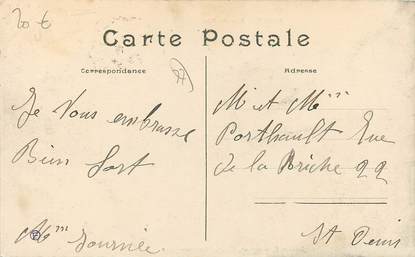 20 €
Carte Postale
Correspondance
Adresse
Je Vous embrasse
Bien fort
Mme Journée
M et Mme
Porthault Rue
de la Briche 22
St Denis